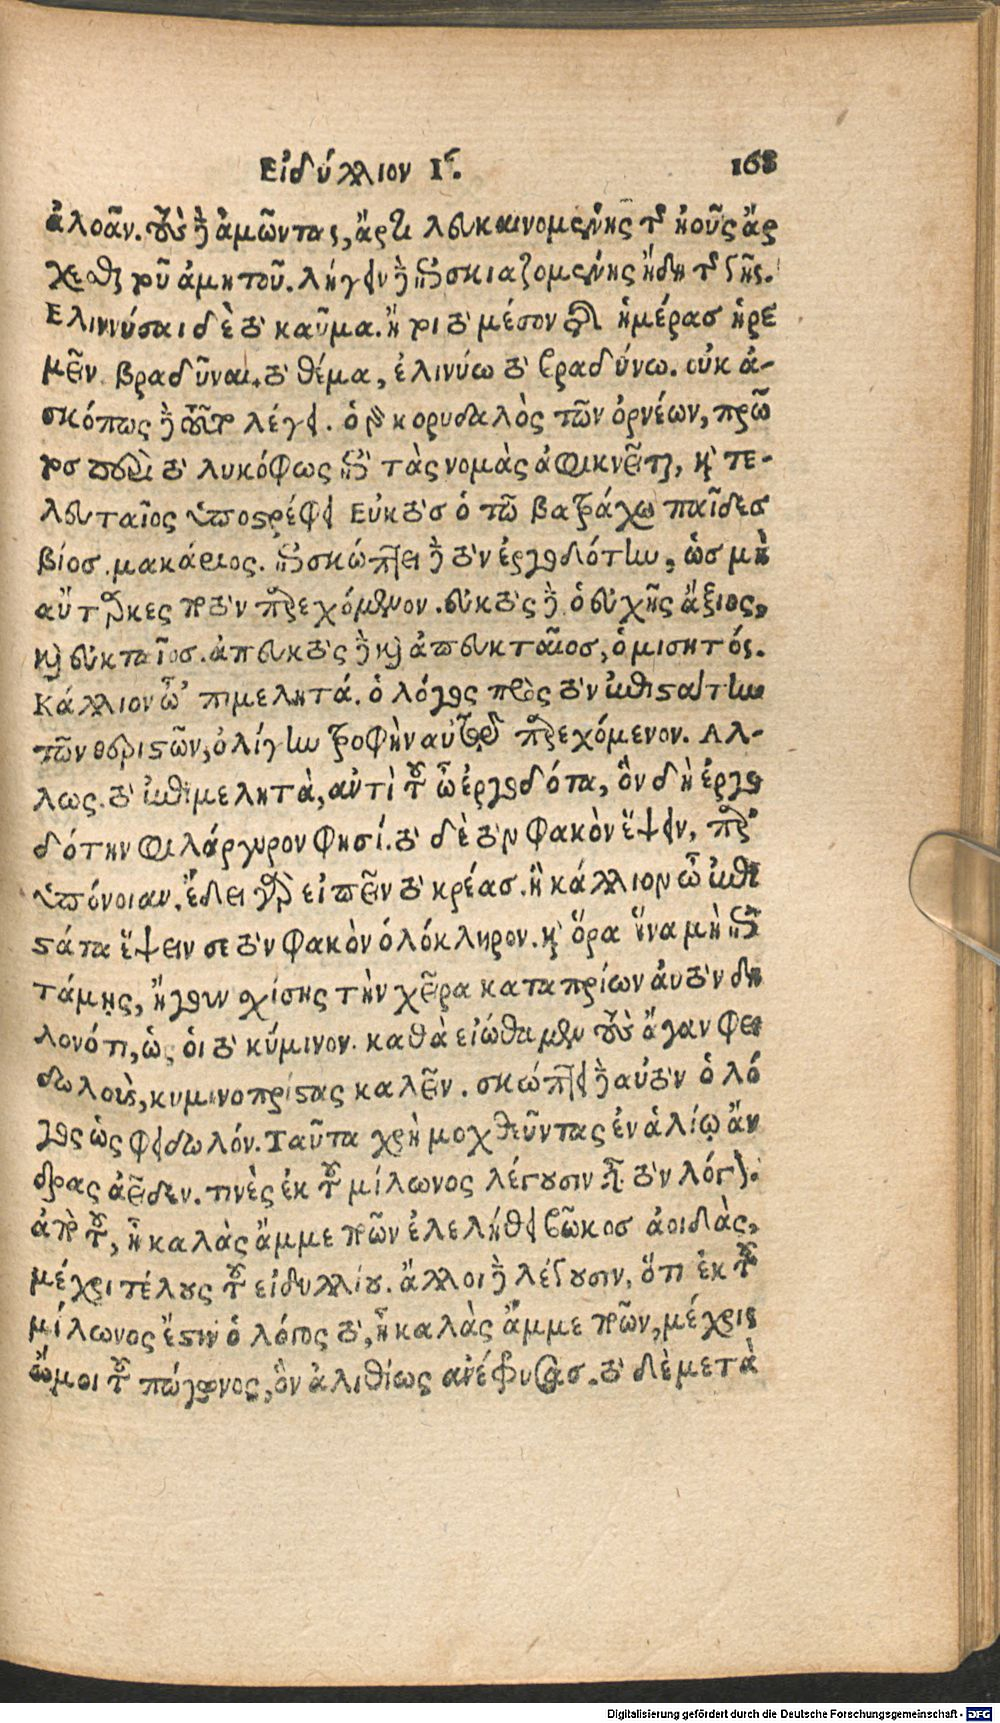 Εἰδύλλιον Ιʹ. 168
ἀλοᾶν. τοὺς δὲ ἀμῶντας, ἄρτι λευκαινομένης τῆς ἠοῦς ἄρ
χεσθαι τοῦ ἀμητοῦ. λήγειν δὲ ἐπισκιαζομένης ἤδη τῆς γῆς.
Ελιννύσαι δὲ τὸ καῦμα. ἤτοι τὸ μέσον τῆς ἡμέρασ ἠρε
μεῖν βραδῦναι. τὸ θέμα, ἐλινύω τὸ βραδύνω. οὐκ ἀ-
σκόπως δὲ τοῦτο λέγει. ὁ γὰρ κορυδαλὸς τῶν ὀρνέων, πρῶ
τοσ περὶ τὸ λυκόφως ἐπὶ τὰς νομὰς ἀφικνεῖται, καὶ τε-
λευταῖος ὑποστρέφει Εὐκτὸσ ὁ τῶ βατράχω παῖδεσ
βίοσ. μακάριος. ἐπισκώπτει δὲ τὸν ἐργοδότην, ὡσ μὴ
αὔταρκες ποτὸν παρεχόμενον. εὐκτὸς δὲ, ὁ εὐχῆς ἄξιος,
καὶ εὐκταῖοσ. ἀπευκτὸς δὲ καὶ ἀπευκταῖοσ, ὁ μισητός.
Κάλλιον ὦ ’πιμελητά. ὁ λόγος πρὸς τὸν ἐπιστάτην
τῶν θεριστῶν, ὀλίγην τροφὴν αὐτοῖς παρεχόμενον. Αλ-
λως. τὸ ἐπιμελητὰ, αὐτὶ τοῦ ὦ ἐργοδότα, ὃν δὴ ἐργο
δότην φιλάργυρον φησί. τὸ δὲ τὸν φακὸν ἕψειν, παρ’
ὑπόνοιαν. ἔδει γὰρ εἰπεῖν τὸ κρέασ. ἢ κάλλιον ὦ ἐπι
στάτα ἕψειν σε τὸν φακὸν ὁλόκληρον. καὶ ὅρα ἵνα μὴ ἐπι
τάμῃς, ἤγουν σχίσῃς τὴν χεῖρα καταπρίων αὐτὸν δη
λονότι, ὡς οἱ τὸ κύμινον. καθὰ εἰώθαμεν τοὺς ἄγαν φει
δωλοὺς, κυμινοπρίστας καλεῖν. σκώπτει δὲ αὐτὸν ὁ λό
γος ὡς φειδωλόν. Ταῦτα χρὴ μοχθεῦντας ἐν ἁλίῳ ἄν
δρας ἀείδεν. τινὲς ἐκ τοῦ μίλωνος λέγουσιν εἶναι τὸν λόγον.
ἀπὸ τοῦ, ἦ καλὰς ἄμμε ποῶν ἐλελήθει βῶκοσ ἀοιδὰς,
μέχρι τέλους τοῦ εἰδυλλίου. ἄλλοι δὲ λέγουσιν, ὅτι ἐκ τοῦ
μίλωνος ἔστιν ὁ λόγος τὸ, ἦ καλὰς ἄμμε ποῶν, μέχρις
ὤμοι τοῦ πώγωνος, ὃν ἀλιθίως ανέφυσασ. τὸ δὲ μετὰ
Digitalisierung gefördert durch die Deutsche Forschungsgemeinschaft - DFG